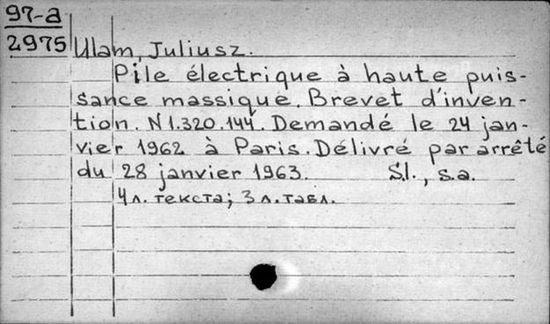 97-a
2975
Ulam, Juliusz.
Pile électrique à haute puis-
sance massique. Brevet d'inven-
tion. N1.320.144. Demandé le 24 jan-
vier 1962 à Paris. Délivré par arrêté
du 28 janvier 1963. S.l., s.a.
4 л. текста; 3 л. табл.